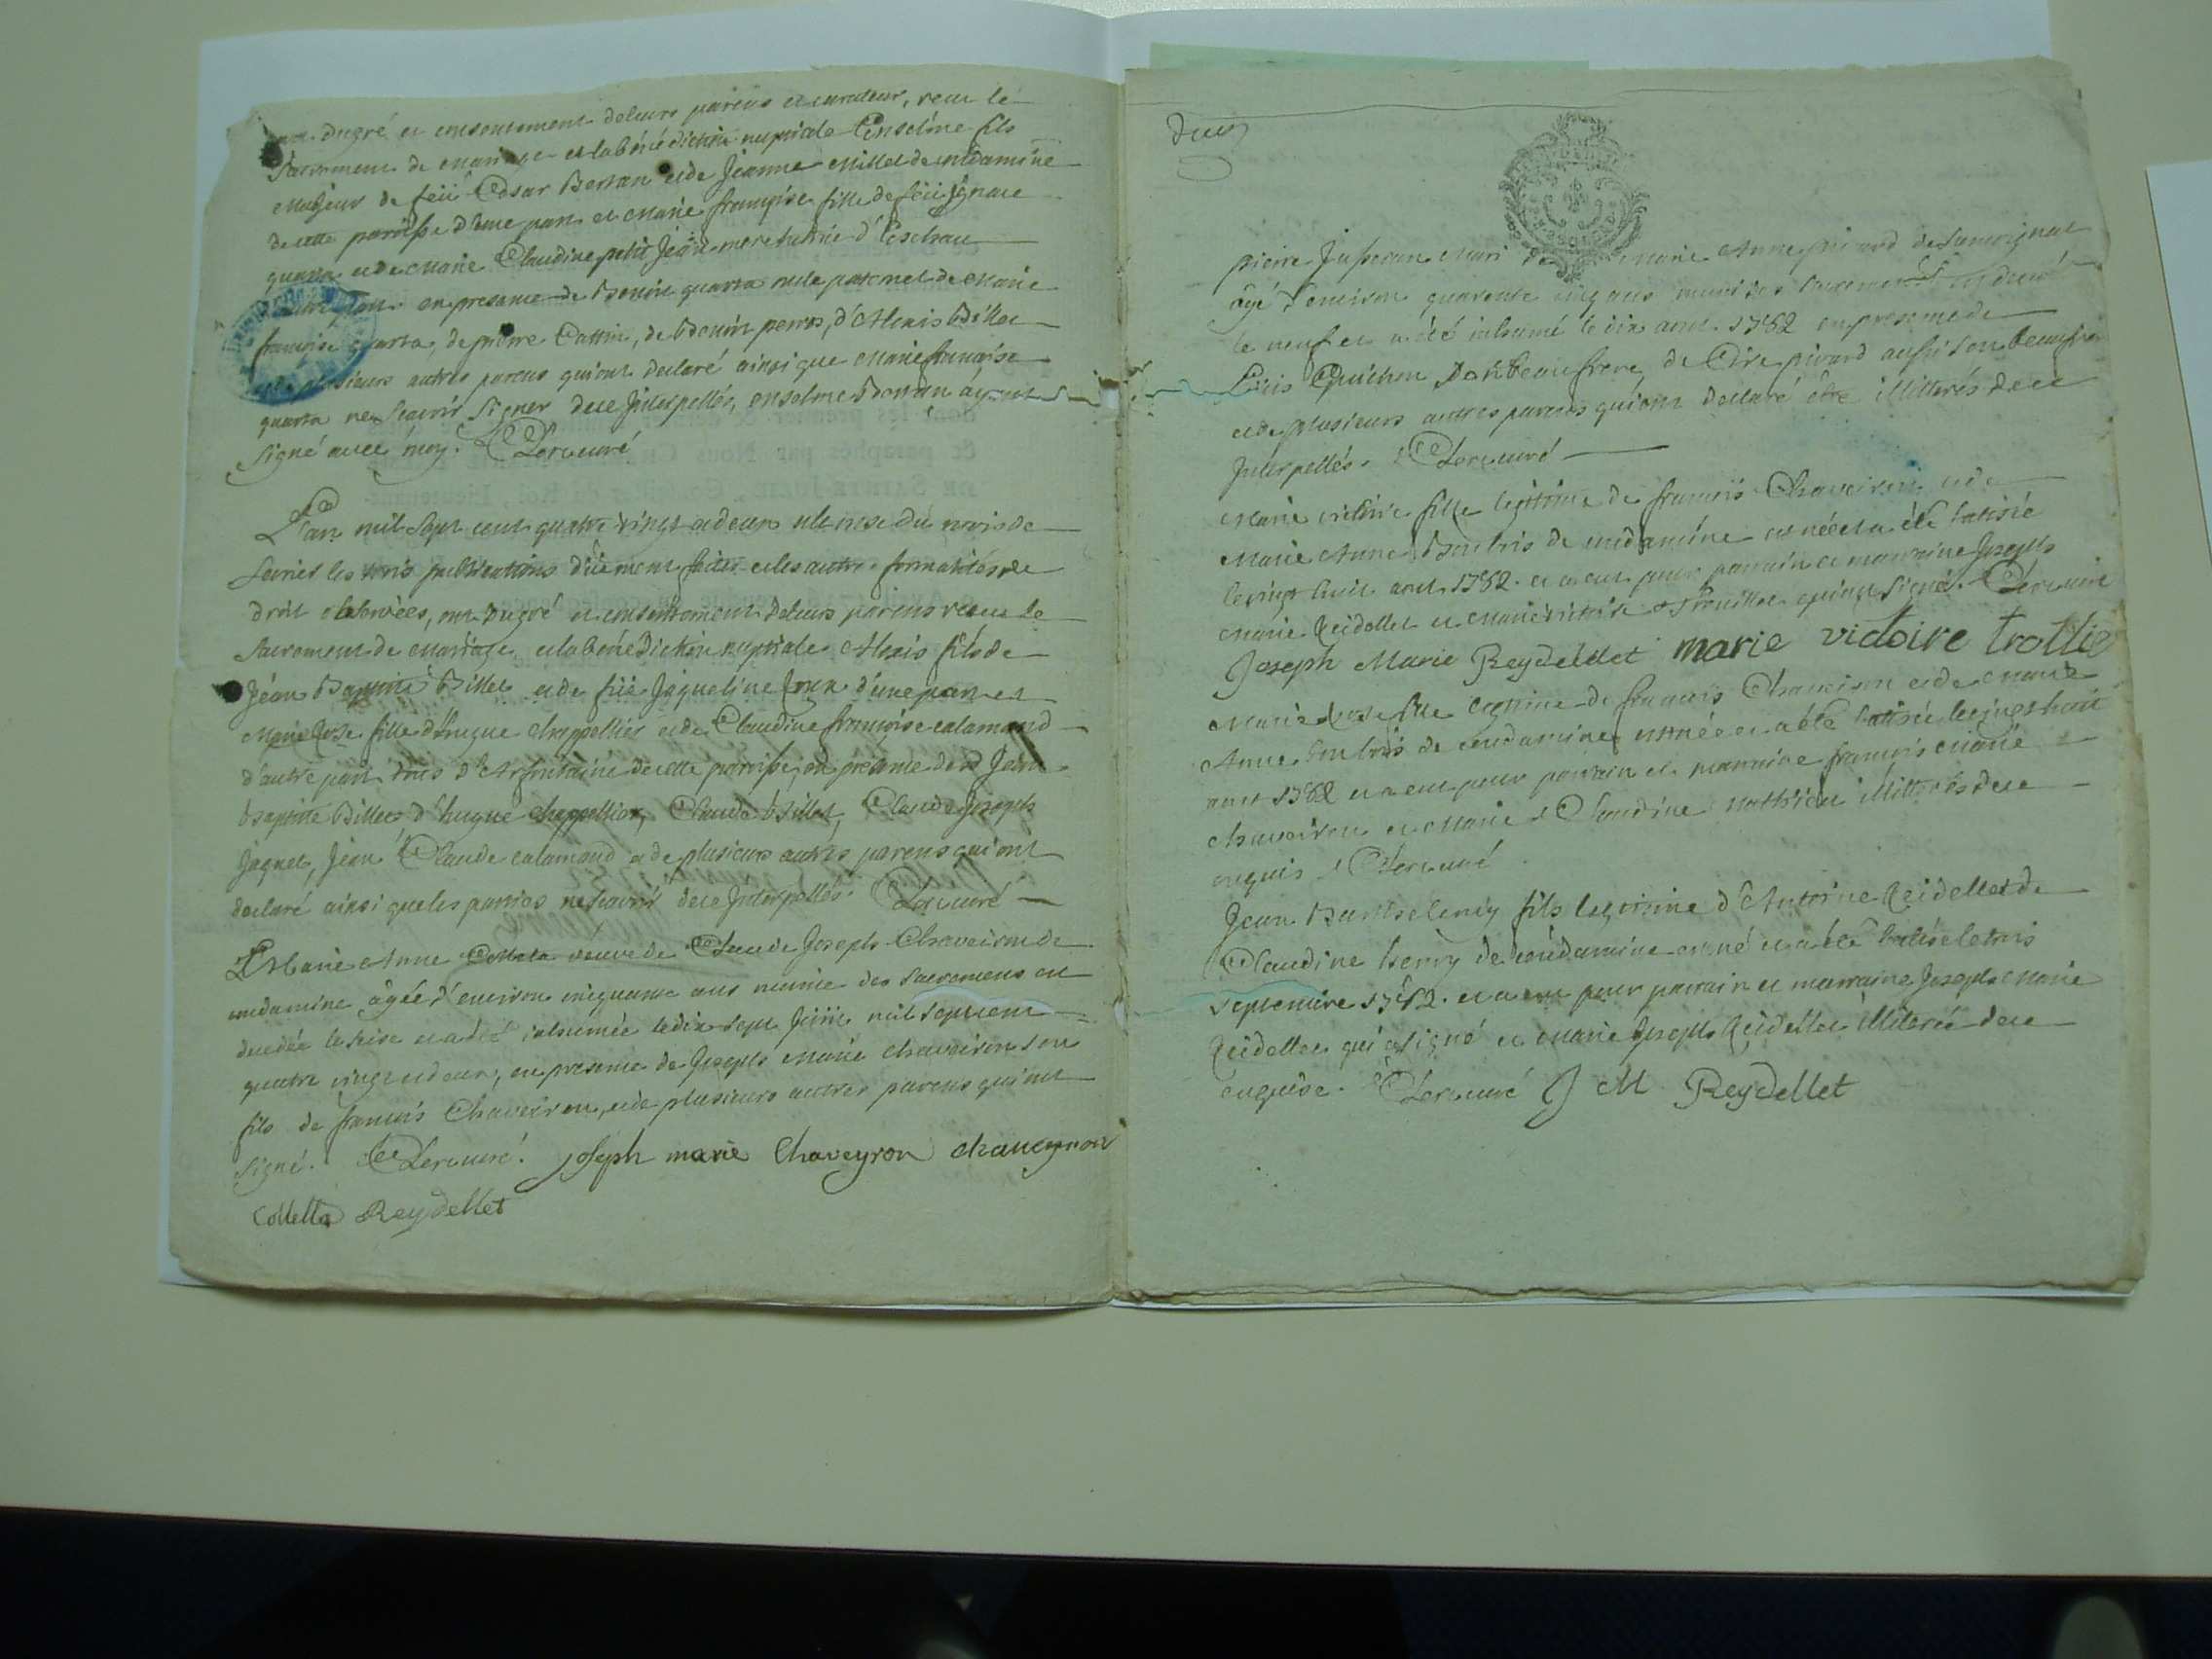 ont Du gré et consentement de leurs parens et curateur, recu le
Sacrement de mariage et la bénédiction nuptiale Enselme fils
majeur de feü César Bertan et de Jeanne Millet de condamine
de cette paroisse d'une part et marie françoise fille de feü ignace
quarta et de marie Claudine petit Jean mere tutrice d'
d'autre part en presence de Benoit quarta oncle paternel de marie
françoise quarta, de pierre Cattin, de benoit perros, d'Alexis Billet
et de plusieurs autres parens qui ont declaré ainsi que marie françoise
quarta ne sçavoir signer de ce Interpellés, enselme ayant
signé avec moy. Curé
L'an mil sept cent quatre vingt et deux et le du mois de
fevrier les trois publications düement faites et les autres formalités de
droit observées, ont du gré et consentement de leurs parens reçu le
Sacrement de mariage et la bénédiction nuptiale Alexis fils de
Jean Baptiste Billet et de feüe Jaqueline d'une part et
Marie Rose fille d'hugue chappellier et de Claudine françoise calamand
d'autre part tous d'Arfontaine de cette paroisse, en présence de Jean
baptiste Billet d'hugue chappellier, Claude billet, Claude Joseph
Jaquet, Jean Claude calamand et de plusieurs autres parens qui ont
declaré ainsi que les parties ne sçavoir de ce Interpellés. curé
Marie Anne Colleta veuve de Claude Joseph Chaveiron de
condamine âgée d'environ cinquante ans munie des sacremens est
decedée le seise et a été inhumée le dix sept Juin mil sept cent
quatre vingt et deux, en presence de Joseph Marie chaveiron son
fils de françois Chaveiron, et de plusieurs autres parens qui ont
signé. curé. joseph marie Chaveyron chaveyron
Colletta Reydellet
deux
pierre Jusseran mari de marie Anne pivard de Samognat
âgé d'environ quarente cinq ans muni des sacremens est decedé
le neuf et a été inhumé le dix aout 1782 en presence de
Loüis Guichon son beaufrere, de pivard aussi son beaufrere
et de plusieurs autres parens qui ont declaré être illitterés de ce
Interpellés. curé
Marie victoire fille legitime de françois Chaveiron et de
Marie Anne de condamine est née et a été batisée
le vingt huit aout 1782. et a eut pour parrain et marraine Joseph
Marie Reidellet et marie victoire qui ont signé. curé
Joseph Marie Reydellet marie victoire trollie
Marie Rose fille legitime de françois Chaveiron et de marie
Anne de condamine est née et a été batisée le vingt huit
aout 1782 et a eut pour parrain et marraine françois marie
chaveiron et marie Claudine mathieu illitterés de ce
enquis curé
Jean Barthelemy fils legitime d'Antoine Reidellet de
Claudine de condamine est né et a été batisé le trois
septembre 1782. et a eut pour parrain et marraine Joseph marie
Reidellet qui a signé et marie Joseph Reidellet illiterée de ce
enquise. curé J M Reydellet